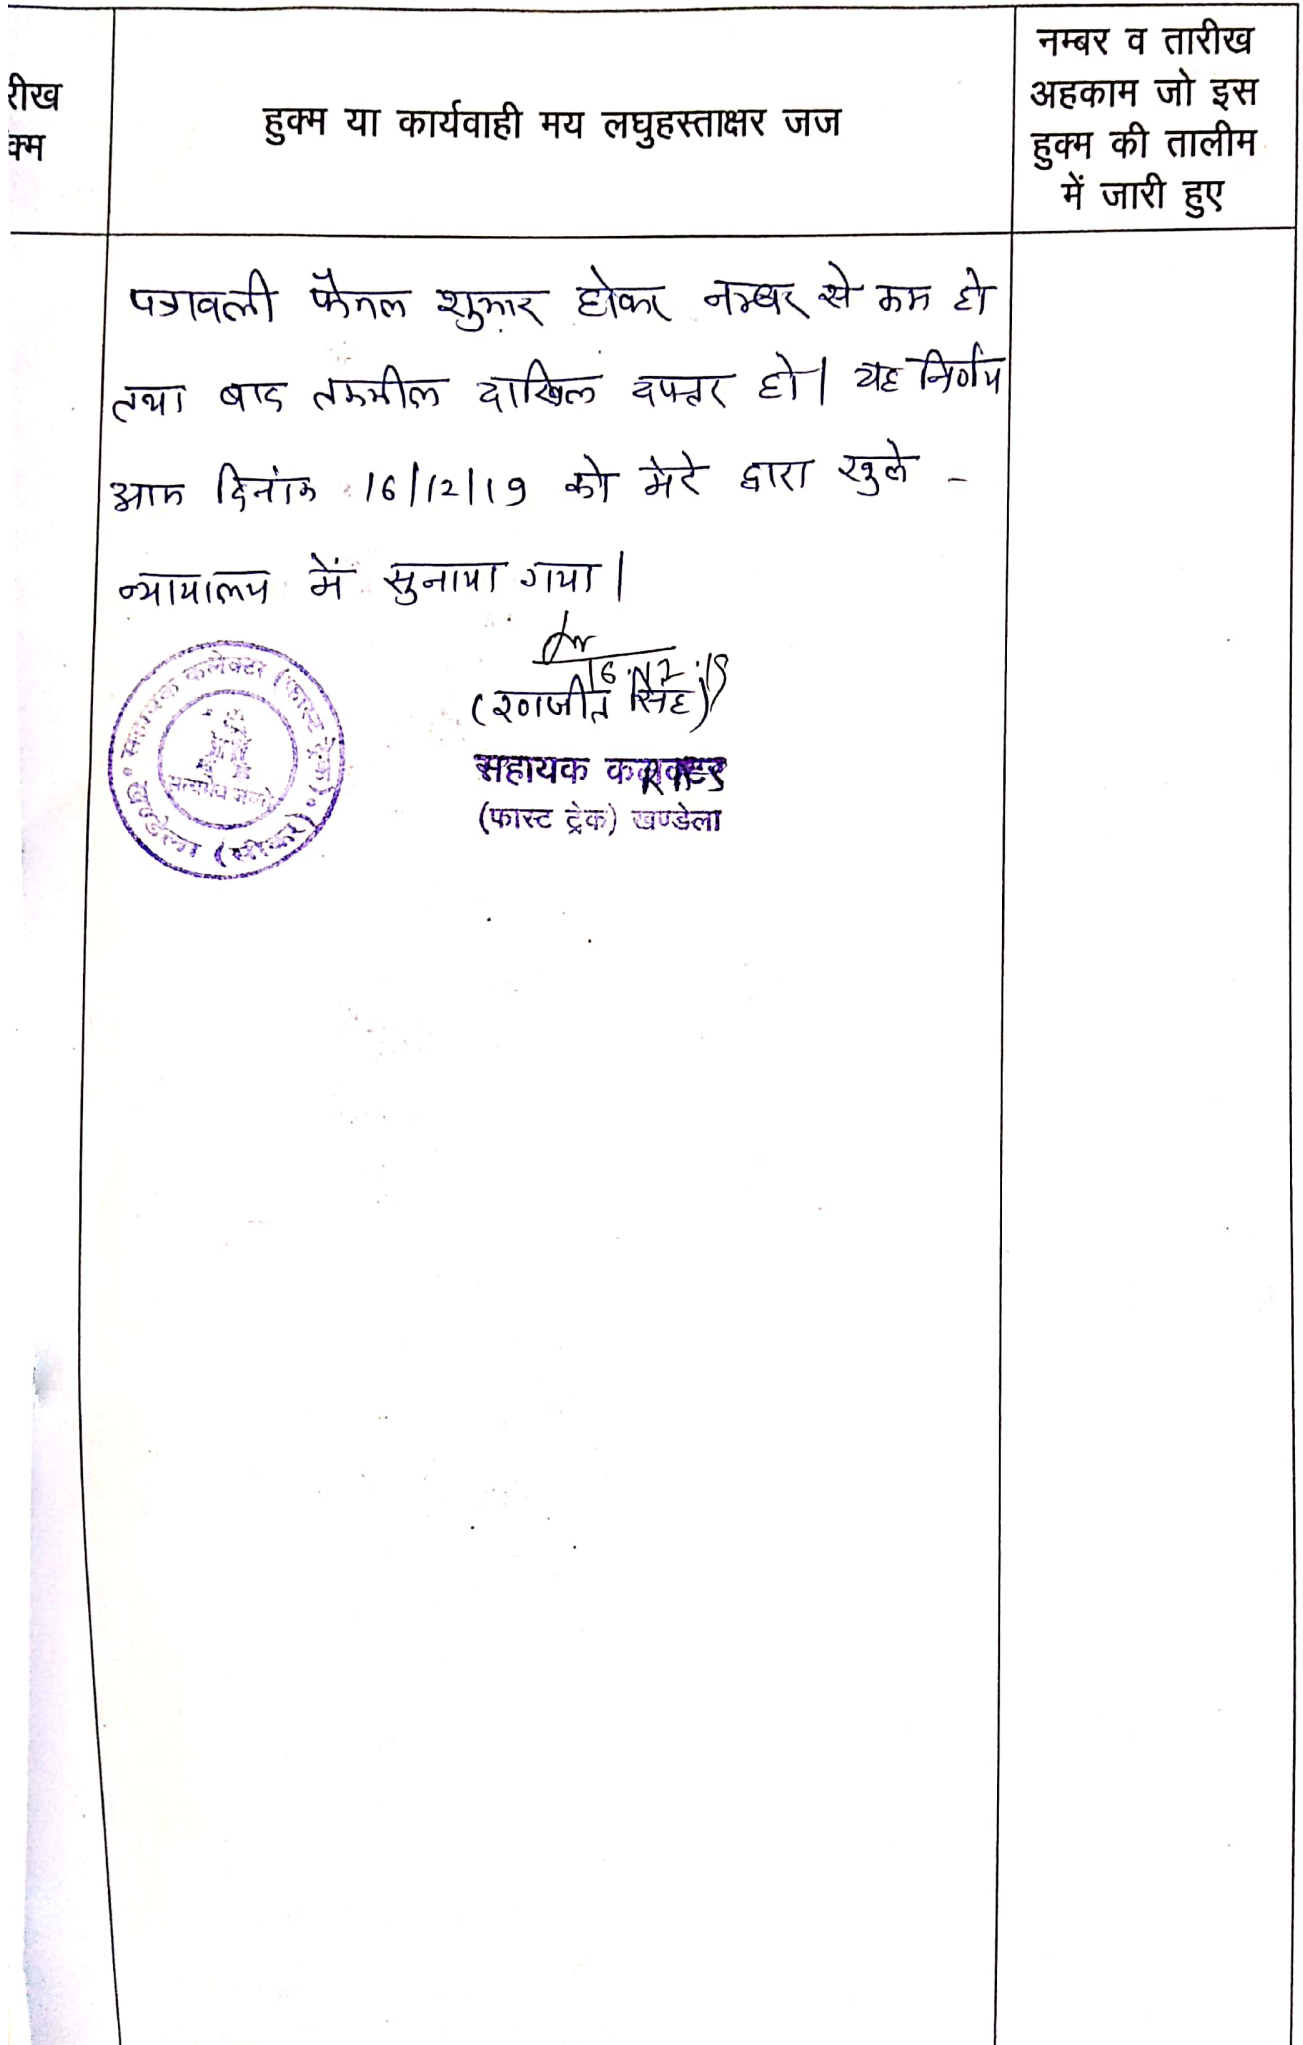 रीख
क्म
हुक्म या कार्यवाही मय लघुहस्ताक्षर जज
नम्बर व तारीख
अहकाम जो इस
हुक्म की तालीम
में जारी हुए
पत्रावली फैसल शुमार होकर नम्बर से कम हो
तथा बाद तकमील दाखिल दफ्तर हो। यह निर्णय
आज दिनांक 16/12/19 को मेरे द्वारा खुले -
न्यायालय में सुनाया गया।
16.12.19
(रणजीत सिंह)
सहायक कलेक्टर
RAS
(फास्ट ट्रेक) खण्डेला
सहायक कलेक्टर (फास्ट ट्रेक)
खण्डेला (सीकर)
सत्यमेव जयते